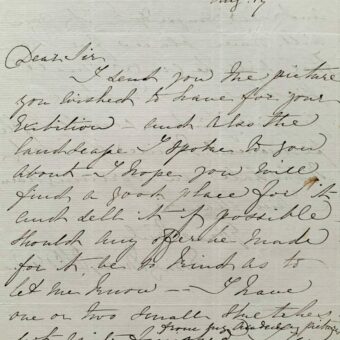 Aug. 17
Dear Sir
I send you the picture
you wished to have for your
Exibition - and also the
landscape I spoke to you
about - I hope you will
find a good place for it
and sell it if possible
should any offer be made
for it be so kind as to
let me know - I have
one or two small sketches
from my Academy picture